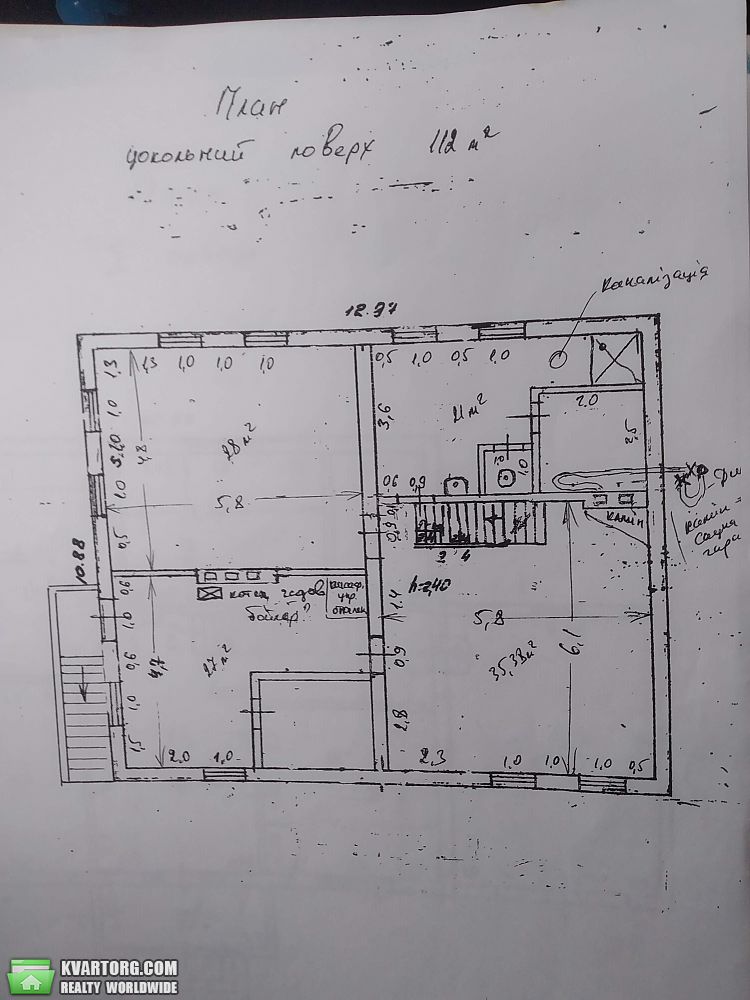 План
цокольний поверх 112 м²
12.97
каналізація
1,3 1,3 1,0 1,0 1,0
0,5 1,0 0,5 1,0
1,0
4,8
28 м²
3,6
21 м²
2.0
2,5
5,8
1,0
0,6 0,9
1,0
0,5
10.88
0,9
камін
камін -
сауна
h=2,40
0,6
котел газов
бойлер?
1,0
1,4
5,8
0,6
4,7
27 м²
0,9
35,38 м²
6,1
1,0
2,8
1,5
2.0 1,0
2,3
1,0 1,0 1,0 0,5
KVARTORG.COM
REALTY WORLDWIDE